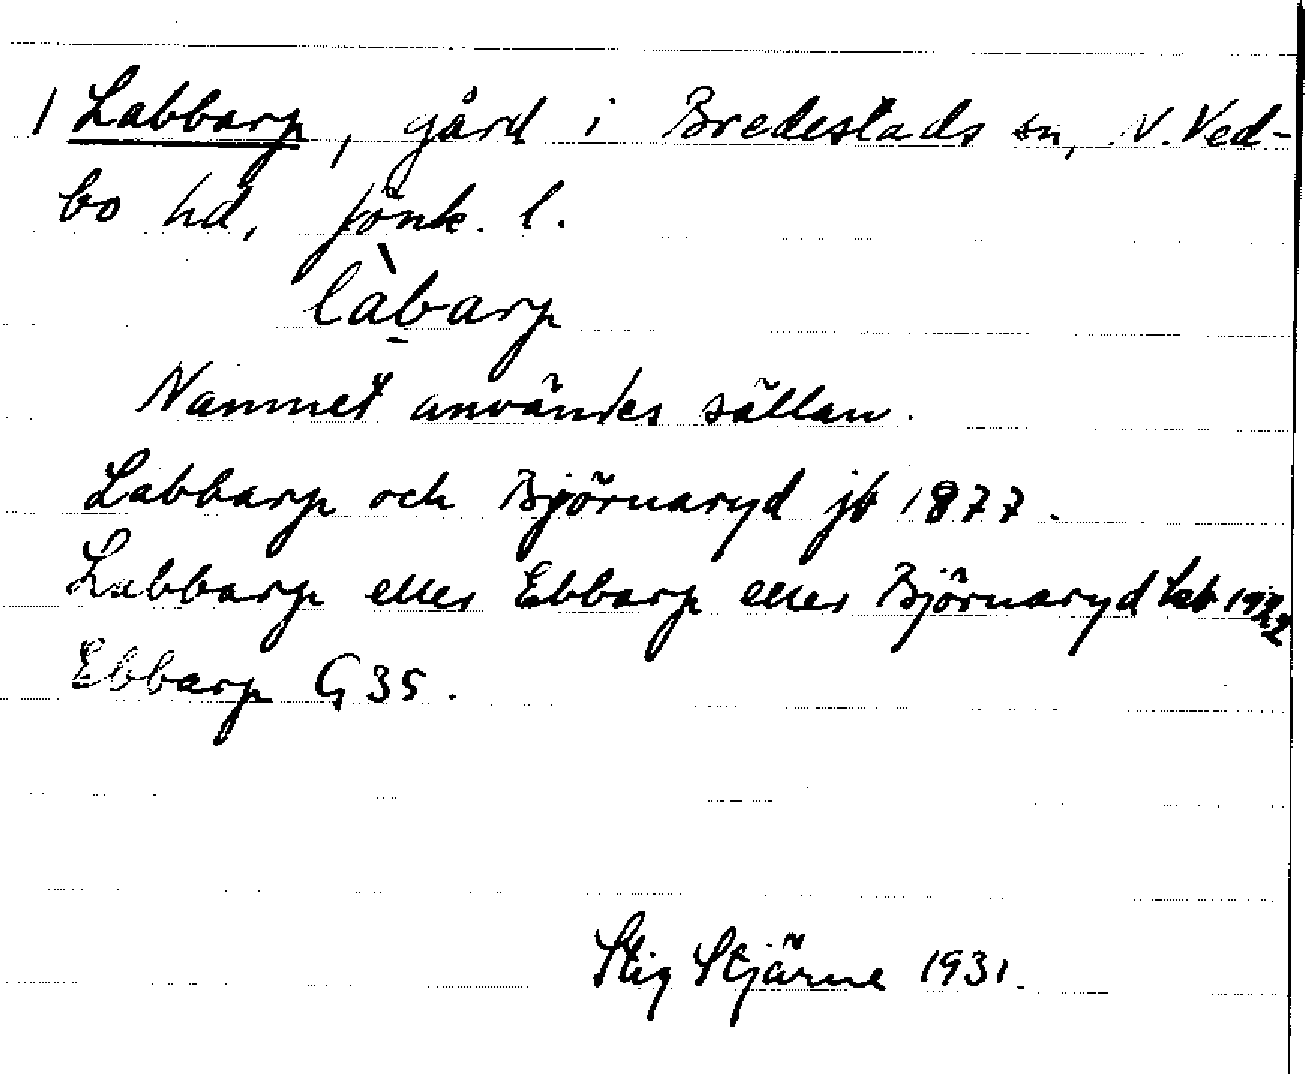 1 Labbarp, gård i Bredestads sn, N. Ved-
bo hd, Jönk. l.
làbarp
Namnet användes sällan.
Labbarp och Björnaryd jb 1877.
Labbarp eller Ebbarp eller Björnaryd
Ebbarp G 35.
Stig Stjärne 1931.